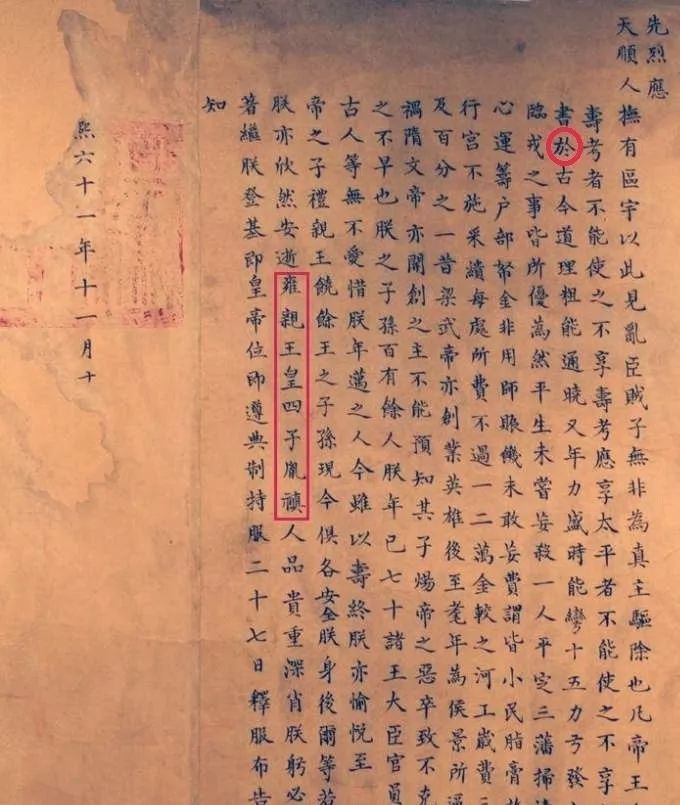 先烈應
天順人撫有區宇以此見亂臣賊子無非為真主驅除也凡帝王
壽考者不能使之不享壽考應享太平者不能使之不享
書於古今道理粗能通曉又年力盛時能彎十五力弓發
臨戎之事皆所優為然平生未嘗妄殺一人平定三藩掃
心運籌戶部帑金非用師賑饑未敢妄費謂皆小民脂膏
行宮不施采繢每處所費不過一二萬金較之河工歲費
及百分之一昔梁武帝亦創業英雄後至耄年為侯景所
禍隋文帝亦開創之主不能預知其子煬帝之惡卒致不克
之不早也朕之子孫百有餘人朕年已七十諸王大臣官員
古人等無不愛惜朕年邁之人今雖以壽終朕亦愉悅至
帝之子禮親王饒餘王之子孫現今俱各安全朕身後爾等若
朕亦欣然安逝雍親王皇四子胤禛人品貴重深肖朕躬必
著繼朕登基即皇帝位即遵典制持服二十七日釋服布告
知
熙六十一年十一月十